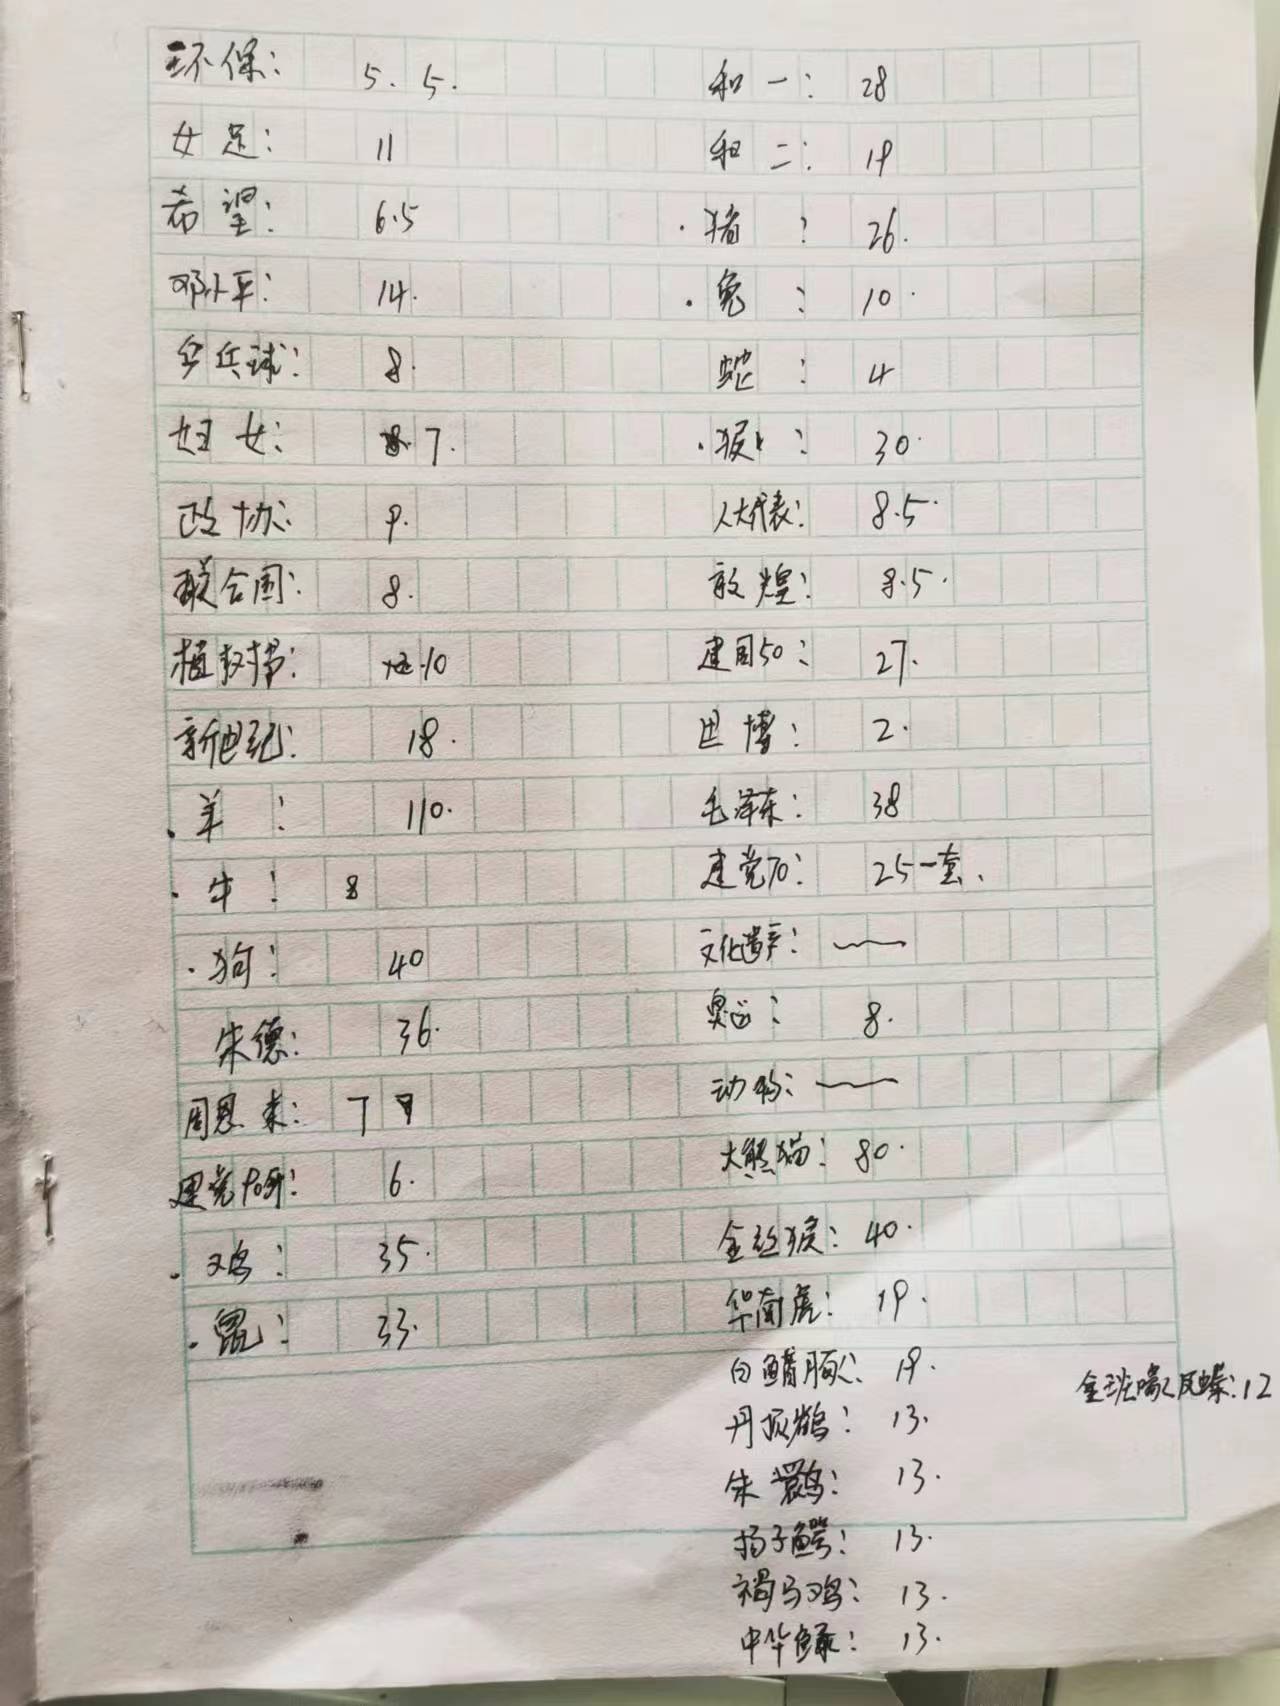 环保: 5.5.
女足: 11
希望: 6.5
邓小平: 14.
乒乓球: 8.
妇女: 7.
政协: 9.
联合国: 8.
植树节: 10
新世纪: 18.
·羊: 110.
·牛: 8
·狗: 40
朱德: 36.
周恩来: 7
建党90周: 6.
·鸡: 35.
·鼠: 33.
和一: 28
和二: 19
·猪: 26.
·兔: 10.
蛇: 4
·猴: 30.
人大代表: 8.5.
敦煌: 8.5.
建国50: 27.
世博: 2.
毛泽东: 38
建党70: 25一套、
文化遗产:
奥运: 8.
动物:
大熊猫: 80.
金丝猴: 40.
华南虎: 19.
白鳍豚: 19.
金斑喙凤蝶: 12
丹顶鹤: 13.
朱鹮: 13.
扬子鳄: 13.
褐马鸡: 13.
中华鲟: 13.